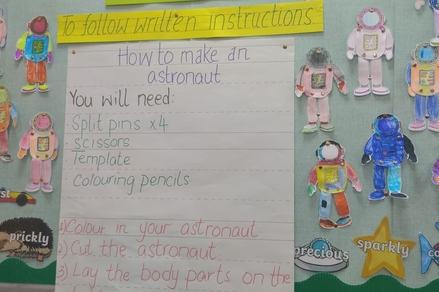 To follow written instructions
How to make an
astronaut
You will need:
Split pins x4
Scissors
Template
Colouring pencils
1) Colour in your astronaut
2) Cut the astronaut
3) Lay the body parts on the
prickly
precious
sparkly